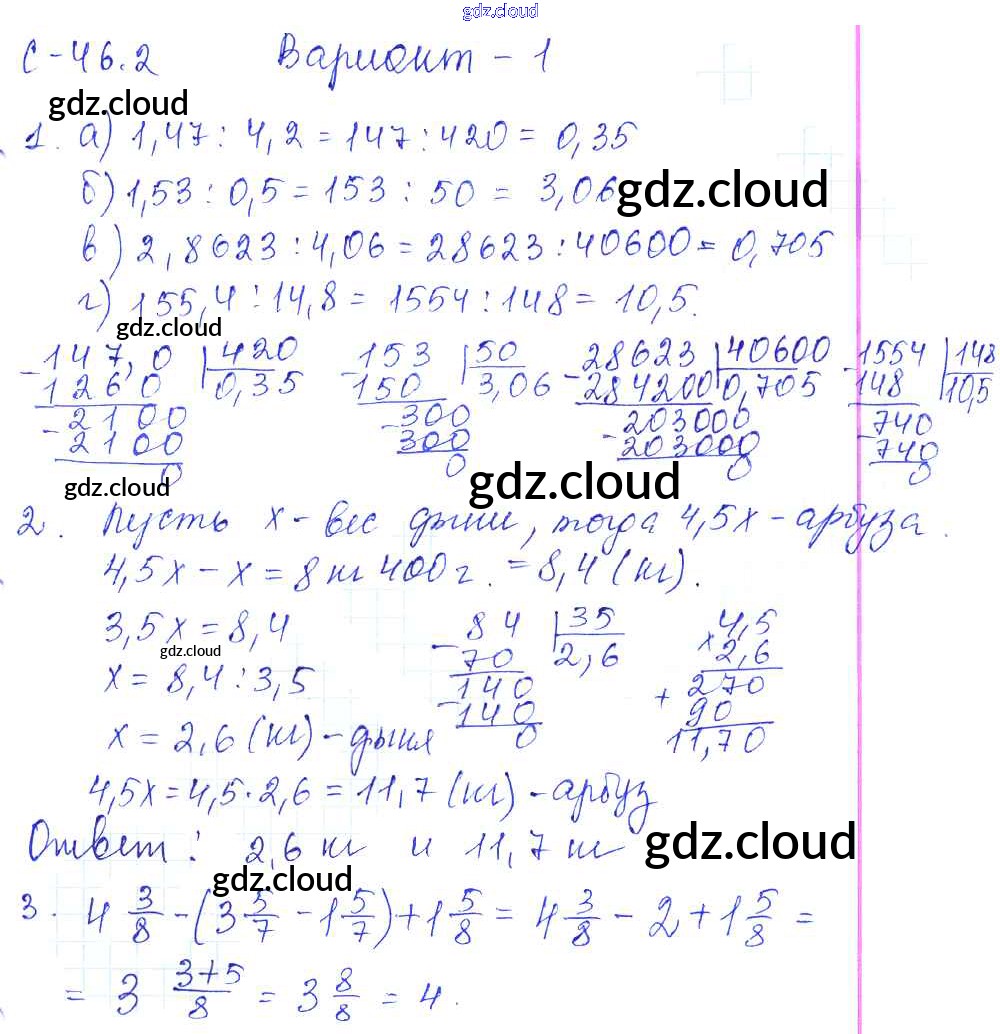 gdz.cloud
С-46.2 Вариант - 1
gdz.cloud
1. а) 1,47 : 4,2 = 147 : 420 = 0,35
б) 1,53 : 0,5 = 153 : 50 = 3,06
gdz.cloud
в) 2,8623 : 4,06 = 28623 : 40600 = 0,705
г) 155,4 : 14,8 = 1554 : 148 = 10,5.
gdz.cloud
-147,0 |420 -153 |50 -28623 |40600 -1554 |148
1260 0,35 150 3,06 284200 0,705 148 10,5
-2100 -300 -203000 -740
2100 300 203000 740
0 0 0 0
gdz.cloud gdz.cloud
2. Пусть х - вес дыни, тогда 4,5х - арбуза.
4,5х - х = 8 кг 400 г. = 8,4 (кг).
3,5х = 8,4 -84 |35 ×4,5
gdz.cloud
70 2,6 2,6
х = 8,4 : 3,5 -140 +270
140 90
х = 2,6 (кг) - дыня 0 11,70
4,5х = 4,5 · 2,6 = 11,7 (кг) - арбуз
Ответ: 2,6 кг и 11,7 кг
gdz.cloud
gdz.cloud
3. 4 3/8 - (3 5/7 - 1 5/7) + 1 5/8 = 4 3/8 - 2 + 1 5/8 =
= 3 3+5/8 = 3 8/8 = 4.